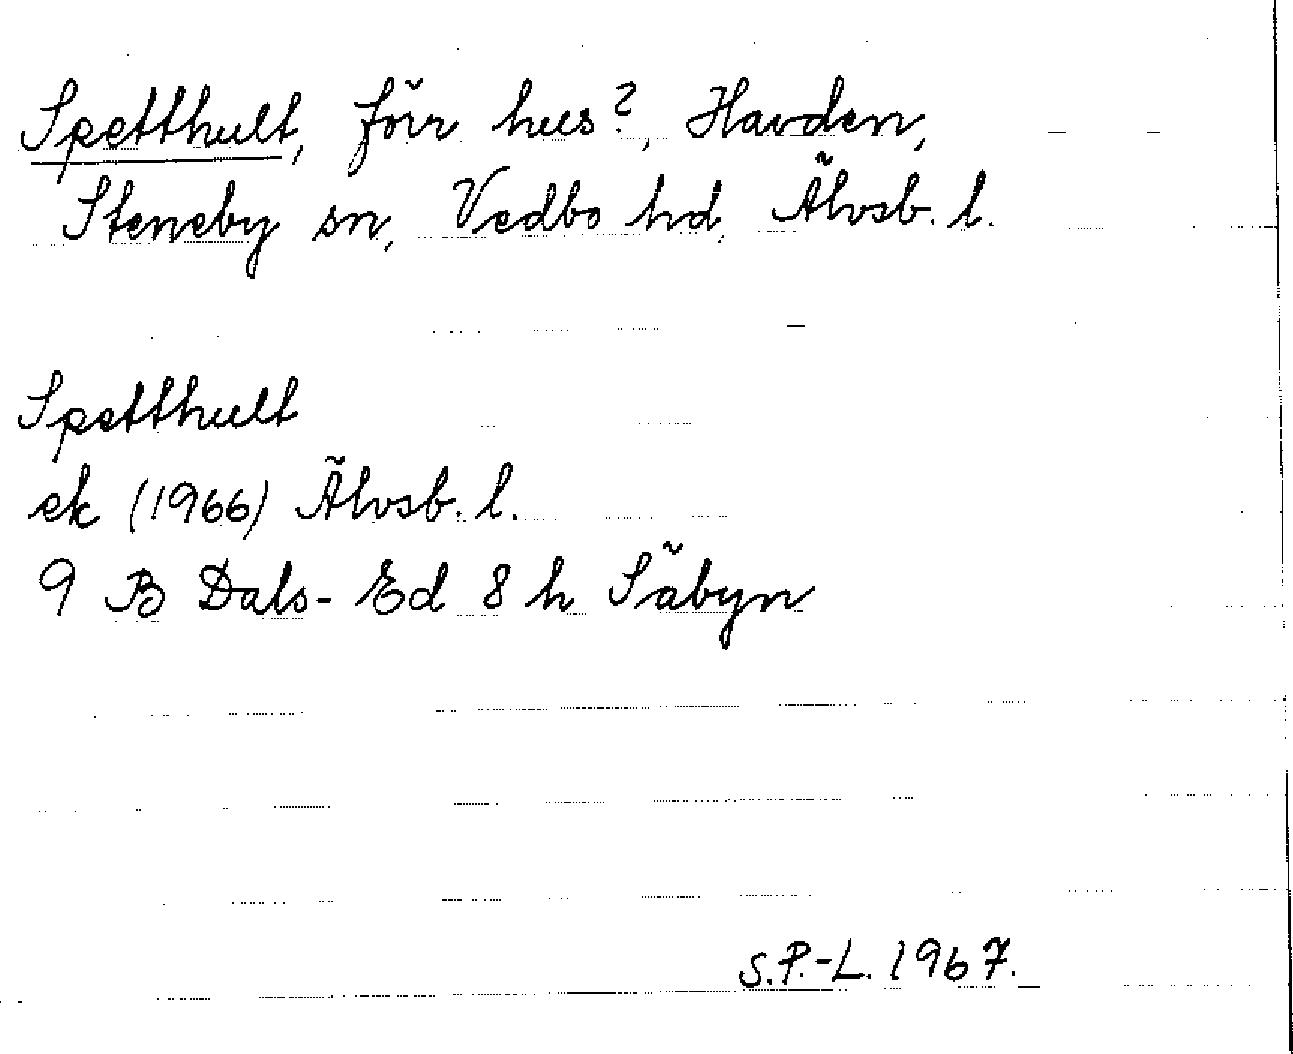 Spetthult, förr hus?, Havden,
Steneby sn, Vedbo hd, Älvsb. l.
Spetthult
ek (1966) Älvsb. l.
9 B Dals-Ed 8 h Säbyn
S.P.-L. 1967.